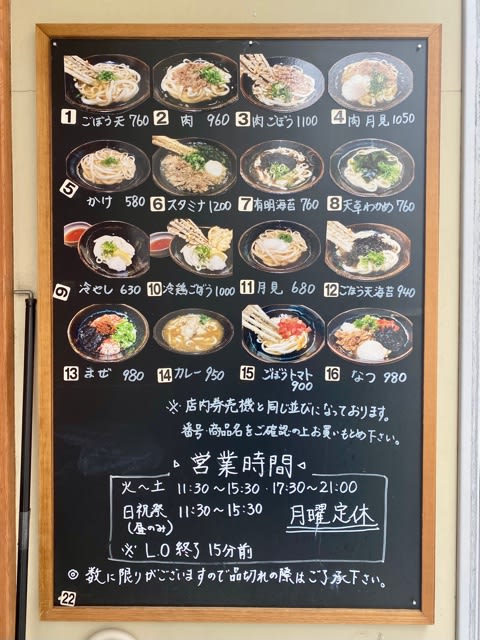 1 ごぼう天 760 2 肉 960 3 肉ごぼう 1100 4 肉月見 1050
5 かけ 580 6 スタミナ 1200 7 有明海苔 760 8 天草わかめ 760
9 冷やし 630 10 冷鶏ごぼう 1000 11 月見 680 12 ごぼう天海苔 940
13 まぜ 980 14 カレー 950 15 ごぼうトマト 900 16 なつ 980
※ 店内券売機と同じ並びになっております。
番号・商品名をご確認の上お買いもとめ下さい。
営業時間
火〜土 11:30〜15:30・17:30〜21:00
日祝祭 11:30〜15:30
(昼のみ) 月曜定休
※ L.O 終了 15分前
◎ 数に限りがございますので品切れの際はご了承下さい。
22